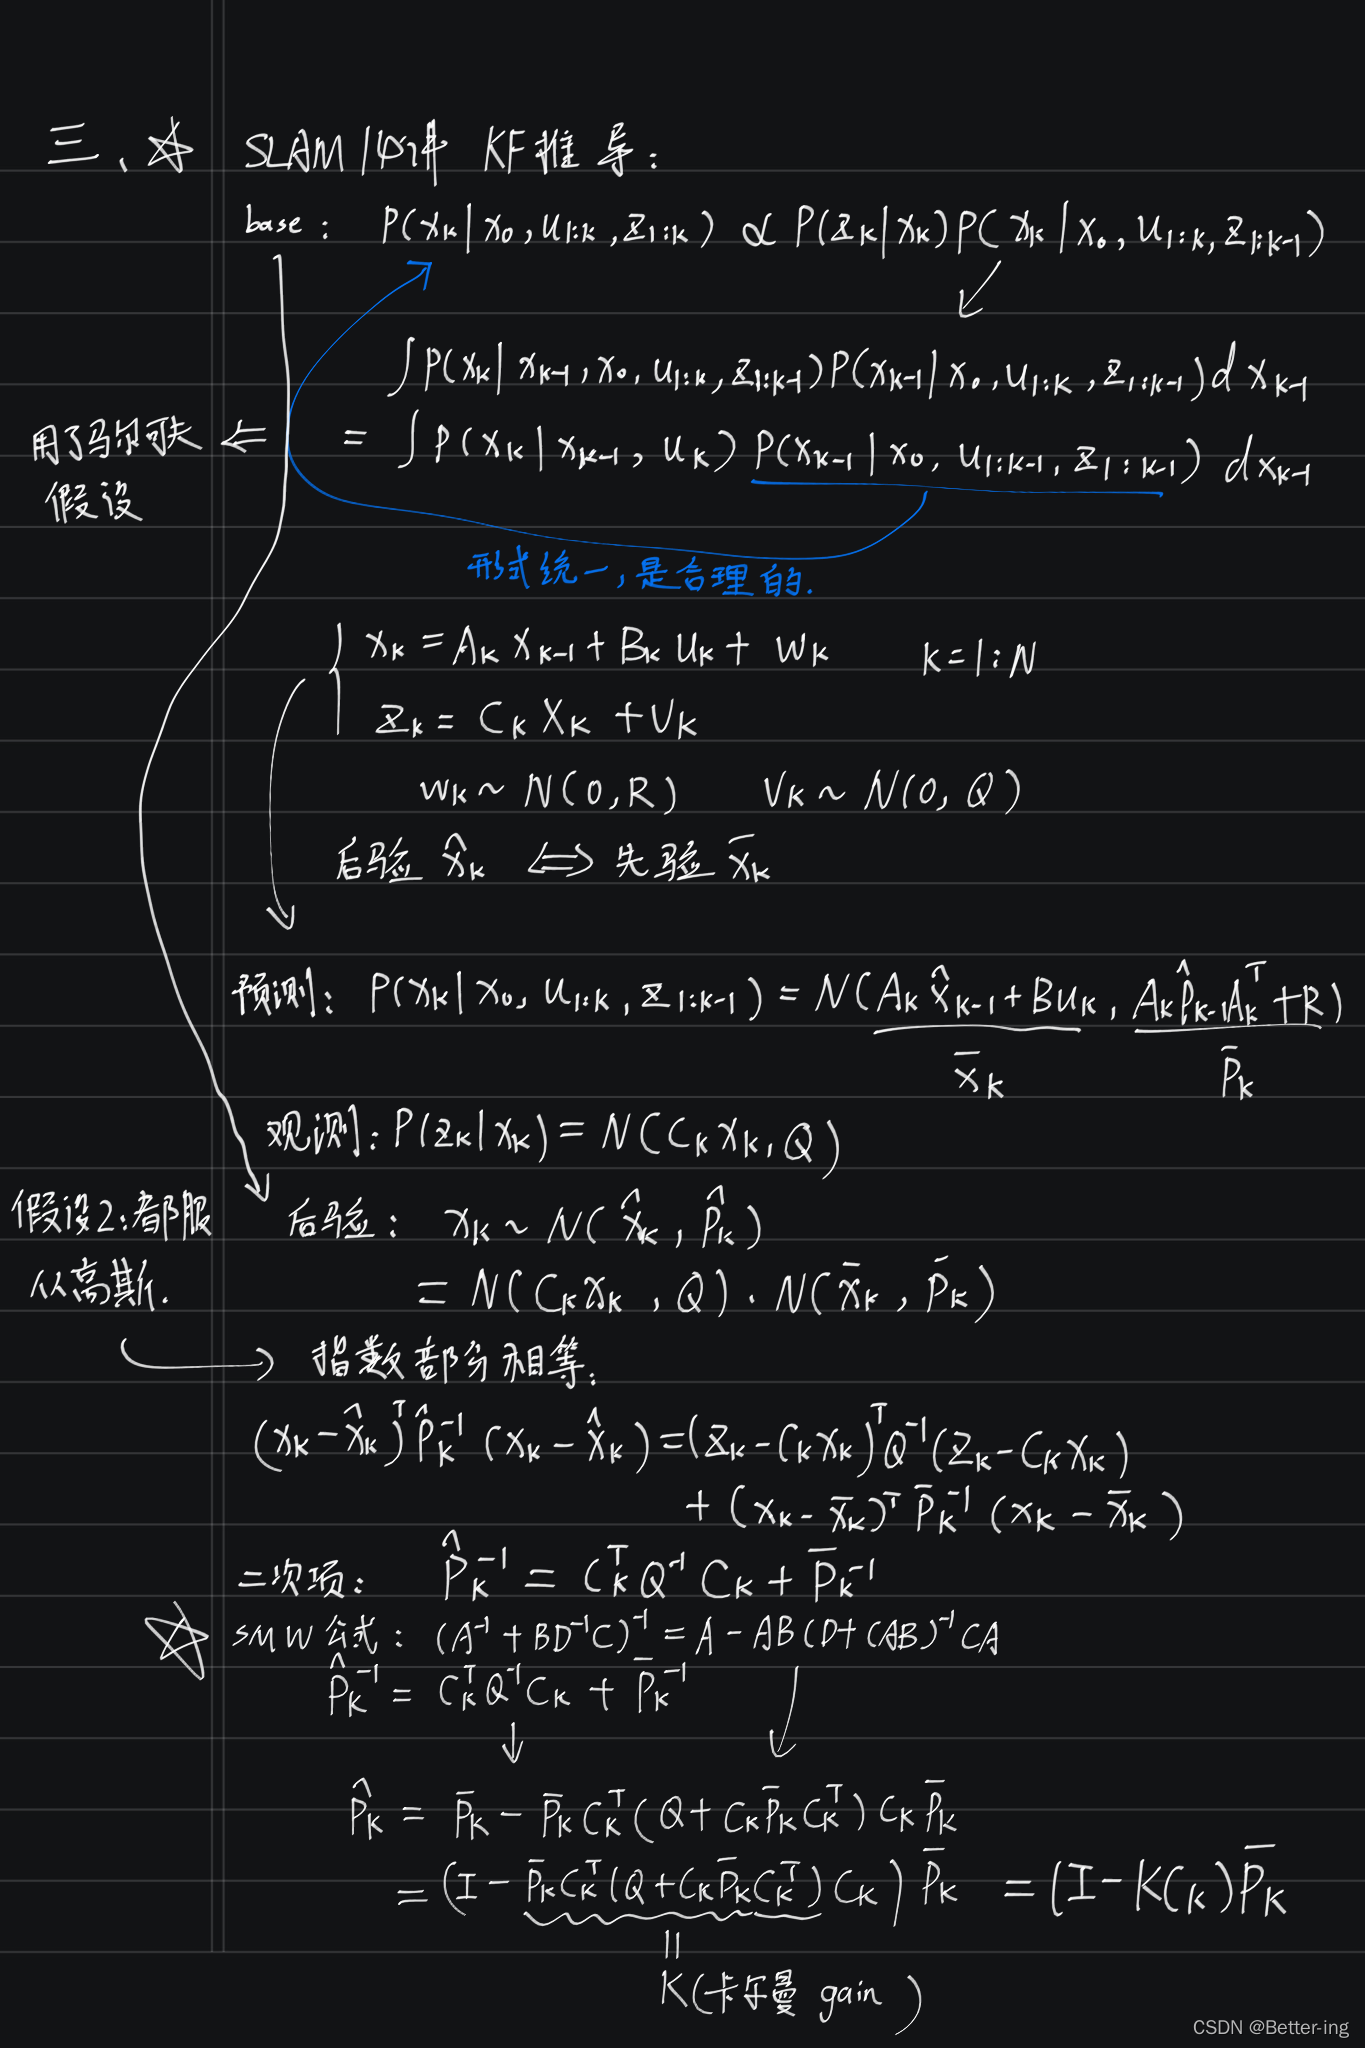 三、☆ SLAM 中 KF推导:
base: P(xₖ|x₀,u₁:ₖ,z₁:ₖ) ∝ P(zₖ|xₖ)P(xₖ|x₀,u₁:ₖ,z₁:ₖ₋₁)
∫P(xₖ|xₖ₋₁,x₀,u₁:ₖ,z₁:ₖ₋₁)P(xₖ₋₁|x₀,u₁:ₖ,z₁:ₖ₋₁)dxₖ₋₁
用了马尔可夫 ⇐ = ∫P(xₖ|xₖ₋₁,uₖ)P(xₖ₋₁|x₀,u₁:ₖ₋₁,z₁:ₖ₋₁)dxₖ₋₁
假设
形式统一,是合理的.
{ xₖ = Aₖxₖ₋₁ + Bₖuₖ + wₖ k=1:N
zₖ = Cₖxₖ + vₖ
wₖ ~ N(0,R) vₖ ~ N(0,Q)
后验 x̂ₖ ⟺ 先验 x̄ₖ
预测: P(xₖ|x₀,u₁:ₖ,z₁:ₖ₋₁) = N(Aₖx̂ₖ₋₁+Buₖ, AₖP̂ₖ₋₁Aₖᵀ+R)
x̄ₖ P̄ₖ
观测: P(zₖ|xₖ) = N(Cₖxₖ,Q)
假设2:都服
从高斯.
后验: xₖ ~ N(x̂ₖ,P̂ₖ)
= N(Cₖxₖ,Q)·N(x̄ₖ,P̄ₖ)
→ 指数部分相等:
(xₖ-x̂ₖ)ᵀP̂ₖ⁻¹(xₖ-x̂ₖ)=(zₖ-Cₖxₖ)ᵀQ⁻¹(zₖ-Cₖxₖ)
+(xₖ-x̄ₖ)ᵀP̄ₖ⁻¹(xₖ-x̄ₖ)
二次项: P̂ₖ⁻¹ = CₖᵀQ⁻¹Cₖ + P̄ₖ⁻¹
☆ SMW公式: (A⁻¹+BD⁻¹C)⁻¹=A-AB(D+CAB)⁻¹CA
P̂ₖ⁻¹ = CₖᵀQ⁻¹Cₖ + P̄ₖ⁻¹
P̂ₖ = P̄ₖ - P̄ₖCₖᵀ(Q+CₖP̄ₖCₖᵀ)CₖP̄ₖ
= (I-P̄ₖCₖᵀ(Q+CₖP̄ₖCₖᵀ)Cₖ)P̄ₖ = (I-KCₖ)P̄ₖ
=
K(卡尔曼 gain)
CSDN @Better-ing